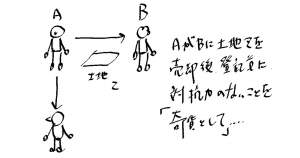 A
B
土地
Z
AがBに土地Zを
売却後 登記員に
対抗力のないことを
「奇貨として」‥‥